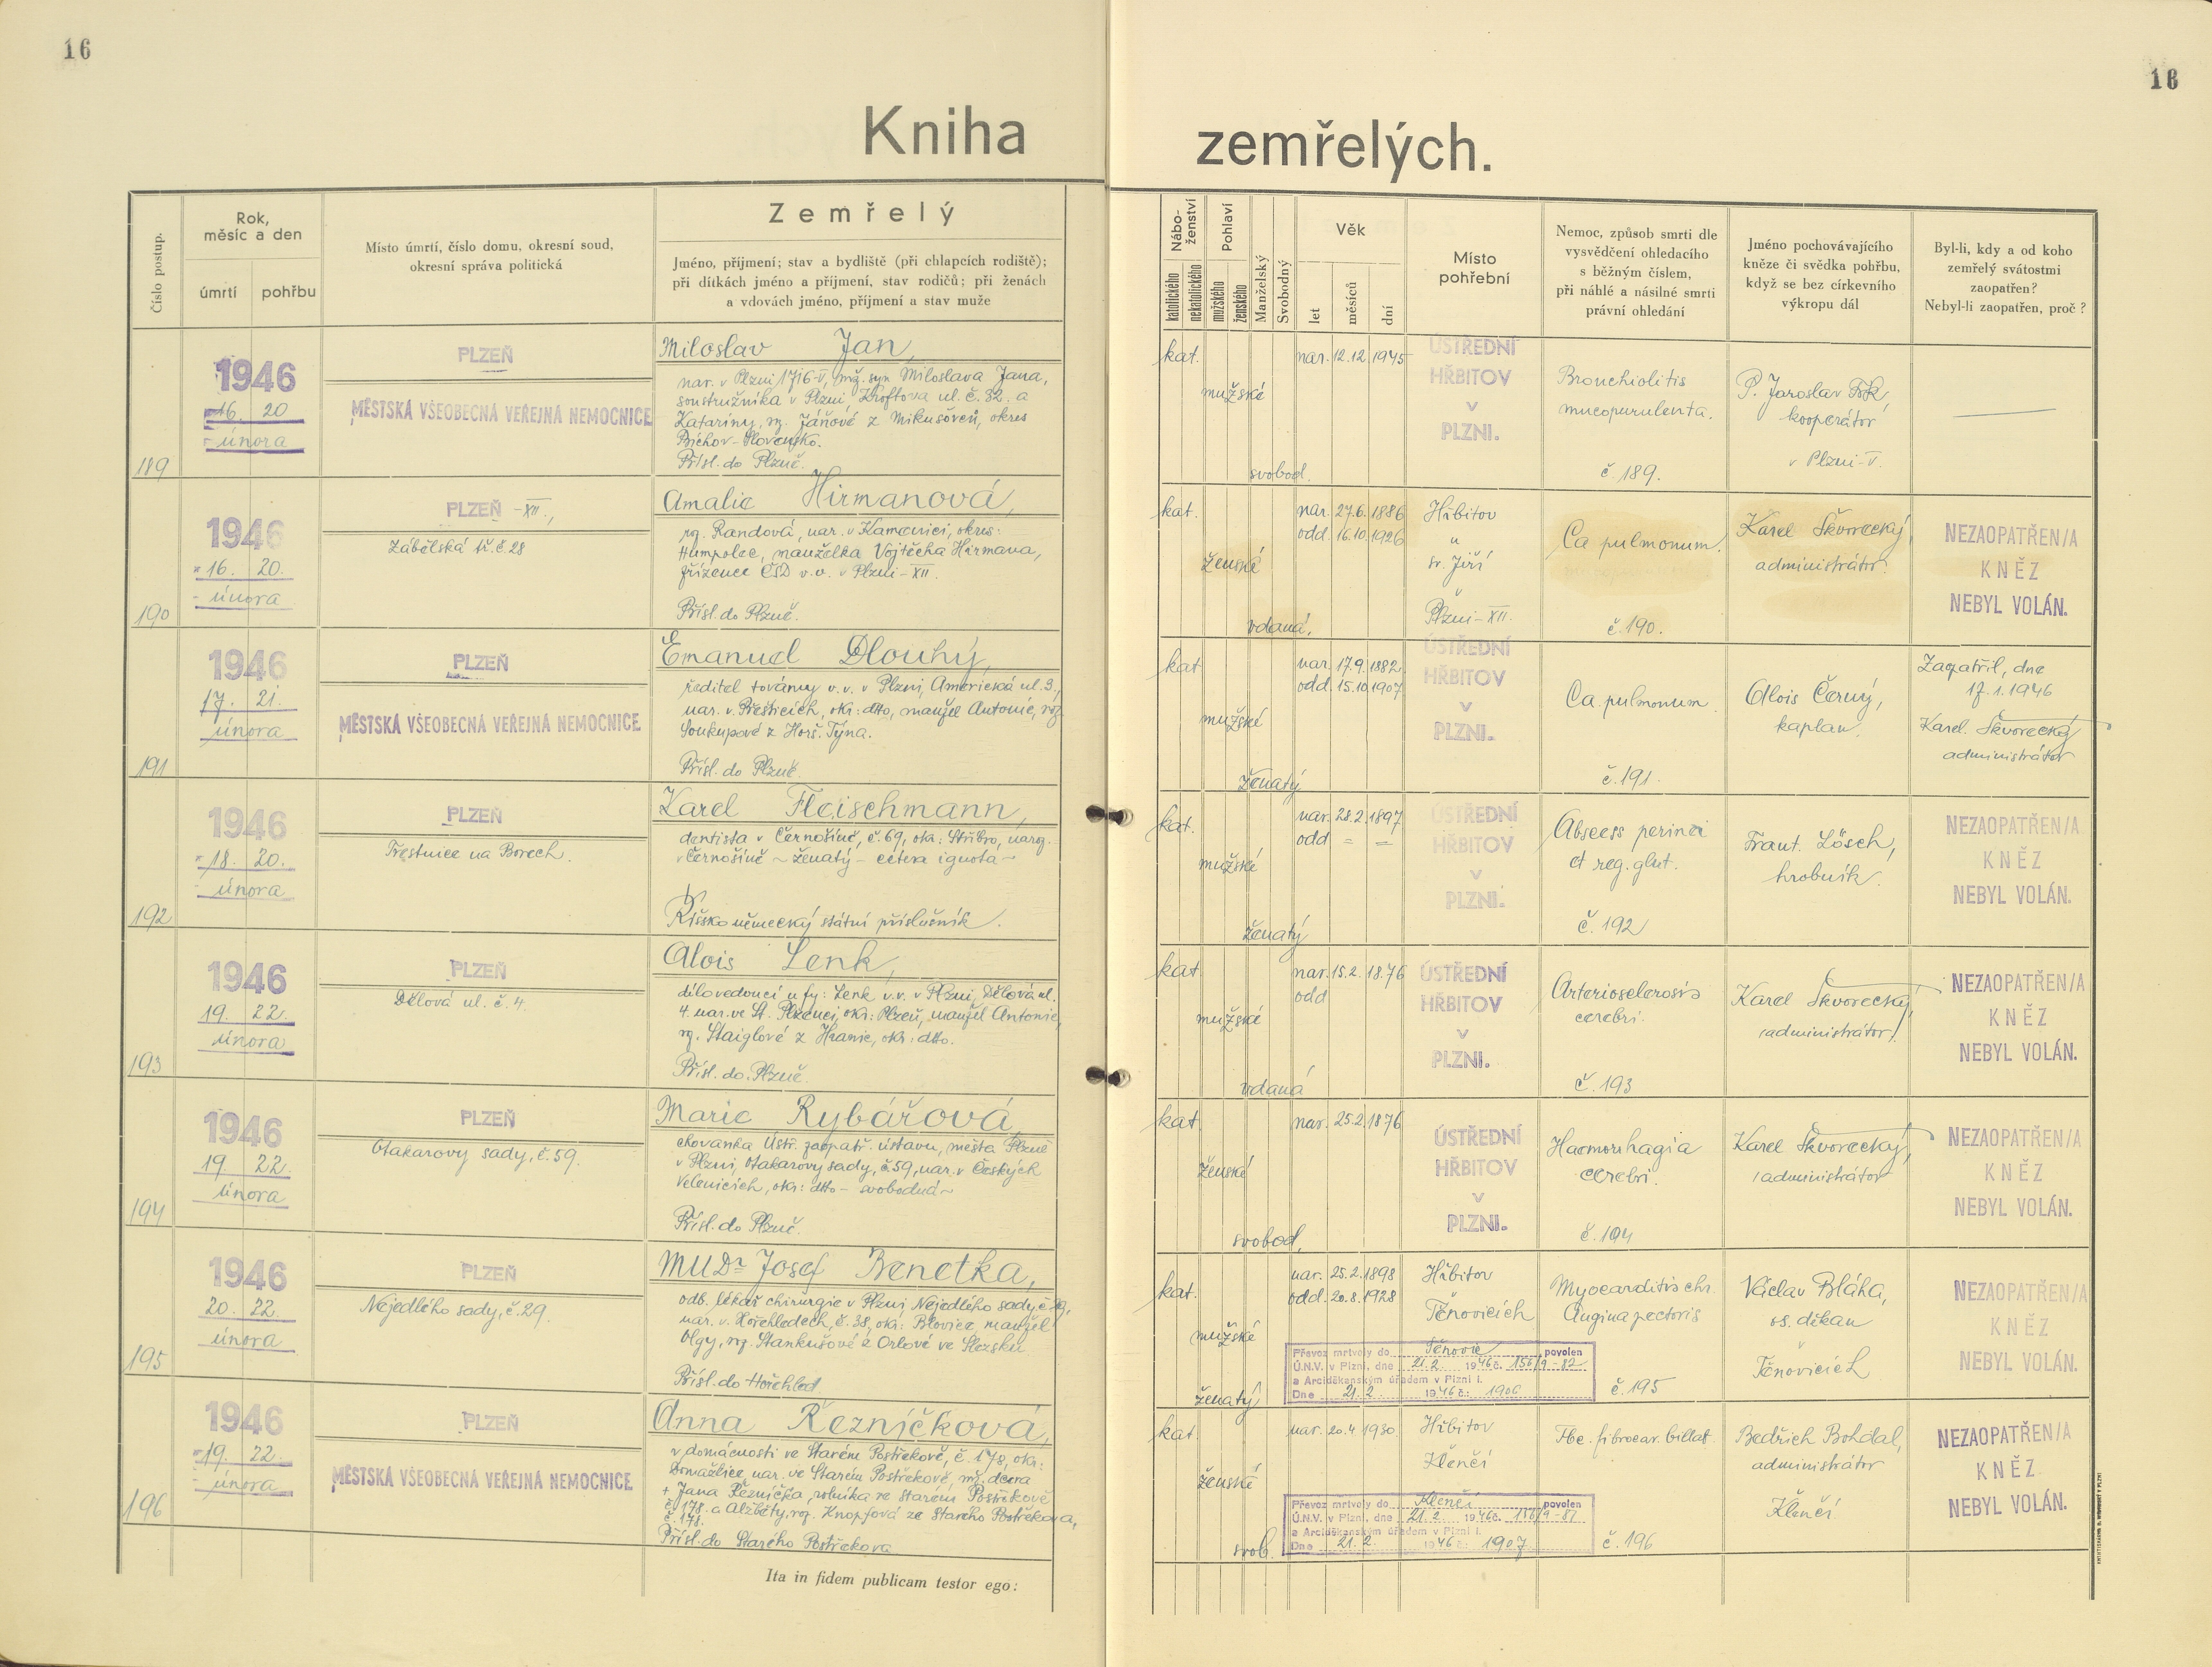 16
16
Kniha zemřelých.
Číslo postup.
Rok,
měsíc a den
úmrtí
pohřbu
Místo úmrtí, číslo domu, okresní soud,
okresní správa politická
Zemřelý
Jméno, příjmení; stav a bydliště (při chlapcích rodiště);
při dítkách jméno a příjmení, stav rodičů; při ženách
a vdovách jméno, příjmení a stav muže
Nábo-
ženství
katolického
nekatolického
Pohlaví
mužského
ženského
Manželský
Svobodný
Věk
let
měsíců
dní
Místo
pohřební
Nemoc, způsob smrti dle
vysvědčení ohledacího
s běžným číslem,
při náhlé a násilné smrti
právní ohledání
Jméno pochovávajícího
kněze či svědka pohřbu,
když se bez církevního
výkropu dál
Byl-li, kdy a od koho
zemřelý svátostmi
zaopatřen?
Nebyl-li zaopatřen, proč?
189
1946
16. 20
února
PLZEŇ
MĚSTSKÁ VŠEOBECNÁ VEŘEJNÁ NEMOCNICE
Miloslav Jan,
nar. v Plzni 1716-V, mž. syn Miloslava Jana,
soustružníka v Plzni, Kroftova ul. č. 32. a
Katariny, roz. Jáňové z Mikušovců, okres
Slovensko.
Přísl. do Plzně.
kat.
mužské
svobod.
nar. 12.12. 1945
ÚSTŘEDNÍ
HŘBITOV
v
PLZNI.
Bronchiolitis
mucopurulenta.
č. 189.
P. Jaroslav
kooperátor
v Plzni-V.
190
1946
16. 20.
února
PLZEŇ -XII.,
Zábělská tř. č. 28
Amalie Hirmanová,
roz. Randová, nar. v Kamenici, okres:
Humpolec, manželka Vojtěcha Hirmana,
zřízence ČSD v.v. v Plzni-XII.
Přísl. do Plzně.
kat.
ženské
vdaná.
nar. 27.6. 1886
odd. 16.10. 1926
Hřbitov
u
sv. Jiří
Plzni-XII.
Ca pulmonum.
č. 190.
Karel Škvorecký
administrátor.
NEZAOPATŘEN/A
KNĚZ
NEBYL VOLÁN.
191
1946
17. 21.
února
PLZEŇ
MĚSTSKÁ VŠEOBECNÁ VEŘEJNÁ NEMOCNICE
Emanuel Dlouhý,
ředitel továrny v.v. v Plzni, Americká ul. 3.,
nar. v Přešticích, okr: dtto, manžel Antonie, roz.
Soukupové z Horš. Týna.
Přísl. do Plzně.
kat
mužské
ženatý
nar. 17.9. 1882
odd. 15.10. 1907
ÚSTŘEDNÍ
HŘBITOV
v
PLZNI.
Ca pulmonum
č. 191.
Alois Černý,
kaplan.
Zaopatřil, dne
17.1.1946
Karel Škvorecký
administrátor
192
1946
18. 20.
února
PLZEŇ
Trestnice na Borech.
Karel Fleischmann,
dentista v Černošíně, č. 69, okr: Stříbro, naroz.
v Černošíně ~ ženatý - cetera ignota ~
Říšskoněmecký státní příslušník.
kat.
mužské
ženatý
nar. 28.2. 1897
odd = =
ÚSTŘEDNÍ
HŘBITOV
v
PLZNI.
Abscess perinei
et reg. glut.
č. 192
Frant. Lösch,
hrobník.
NEZAOPATŘEN/A
KNĚZ
NEBYL VOLÁN.
193
1946
19. 22.
února
PLZEŇ
Dělová ul. č. 4.
Alois Lenk,
dílovedoucí u fy: Lenk v.v. v Plzni, Dělová ul.
4. nar. ve St. Plzenci, okr: Plzeň, manžel Antonie,
roz. Staiglové z Hranic, okr: dtto.
Přísl. do Plzně.
kat.
mužské
vdaná
nar. 15.2. 1876
odd
ÚSTŘEDNÍ
HŘBITOV
v
PLZNI.
Arteriosclerosis
cerebri.
č. 193
Karel Škvorecký,
administrátor.
NEZAOPATŘEN/A
KNĚZ
NEBYL VOLÁN.
194
1946
19. 22.
února
PLZEŇ
Otakarovy sady, č. 59.
Marie Rybářová,
chovanka Ústř. zaopatř. ústavu, města Plzně
v Plzni, Otakarovy sady, č. 59, nar. v Českých
Velenicích, okr: dtto - svobodná ~
Přísl. do Plzně.
kat
ženské
svobod.
nar. 25.2. 1876
ÚSTŘEDNÍ
HŘBITOV
v
PLZNI.
Haemorrhagia
cerebri.
č. 194
Karel Škvorecký,
administrátor
NEZAOPATŘEN/A
KNĚZ
NEBYL VOLÁN.
195
1946
20. 22.
února
PLZEŇ
Nejedlého sady, č. 29.
MUDr Josef Benetka,
odb. lékař chirurgie v Plzni, Nejedlého sady č. 29,
nar. v Hořehledech, č. 38, okr: Blovice, manžel
Olgy, roz. Stankušové z Orlové ve Slezsku
Přísl. do Hořehled
kat.
mužské
ženatý
nar. 25.2. 1898
odd. 20.8. 1928
Hřbitov
Těnovicích
Převoz mrtvoly do Těnovic povolen
Ú.N.V. v Plzni, dne 21.2. 1946 č. 156/9-82
a Arciděkanským úřadem v Plzni I.
Dne 21.2. 1946 č.: 1906
Myocarditis chr.
Angina pectoris
č. 195
Václav Bláha,
os. děkan
Těnovicích
NEZAOPATŘEN/A
KNĚZ
NEBYL VOLÁN.
196
1946
19. 22.
února
PLZEŇ
MĚSTSKÁ VŠEOBECNÁ VEŘEJNÁ NEMOCNICE
Anna Řezníčková,
v domácnosti ve Starém Postřekově, č. 178, okr:
Domažlice, nar. ve Starém Postřekově, mž. dcera
+ Jana Řezníčka, rolníka ve Starém Postřekově
č. 178. a Alžběty, roz. Knopfová ze Starého Postřekova,
č. 178.
Přísl. do Starého Postřekova
kat.
ženské
svob.
nar. 20.4 1930
Hřbitov
Klenčí
Převoz mrtvoly do Klenčí povolen
Ú.N.V. v Plzni, dne 21.2. 1946 č. 156/9-81
a Arciděkanským úřadem v Plzni I.
Dne 21.2. 1946 č: 1907
Tbc. fibrocav. billat.
č. 196
Bedřich Bohdal,
administrátor
Klenčí
NEZAOPATŘEN/A
KNĚZ
NEBYL VOLÁN.
Ita in fidem publicam testor ego: